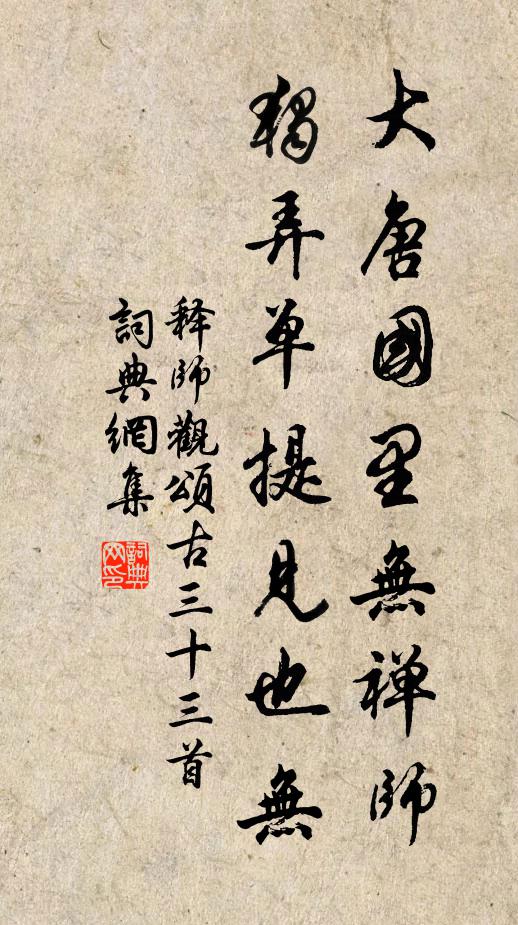 大唐國里無禅師
獨弄单提見也無
释師觀頌古三十三首
詞典網集
詞典網印